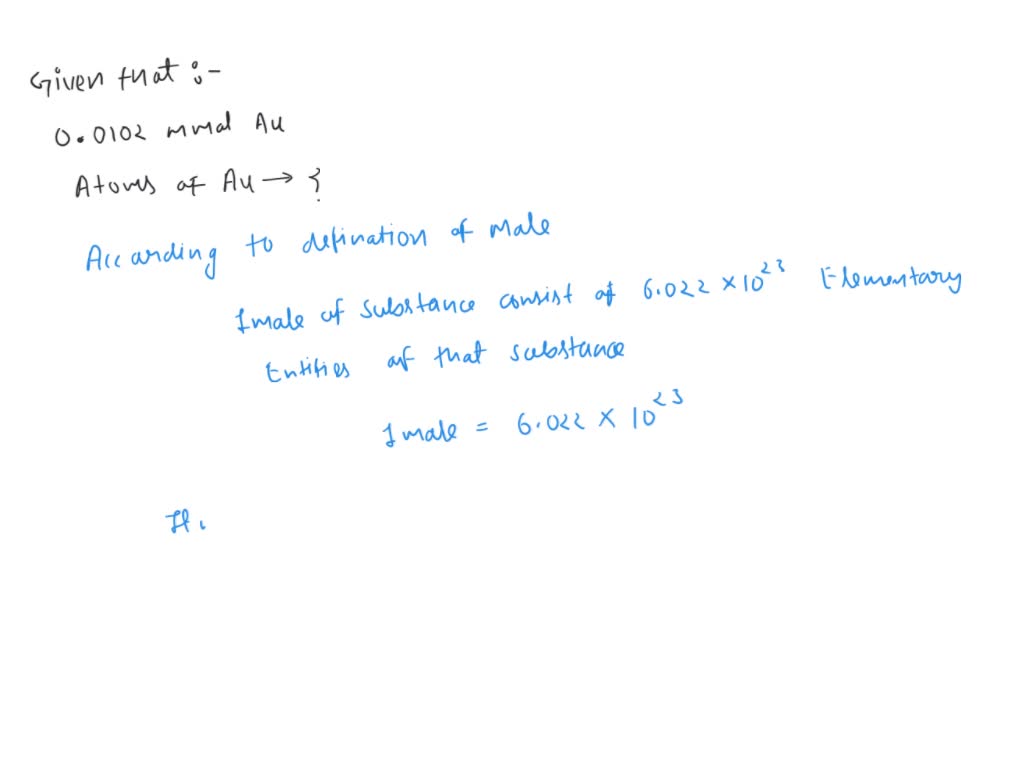 Given that :-
0.0102 mmol Au
Atoms of Au → ?
According to defination of mole
1 mole of substance consist of 6.022 × 10²³ Elementary
Entities of that substance
1 mole = 6.022 × 10²³